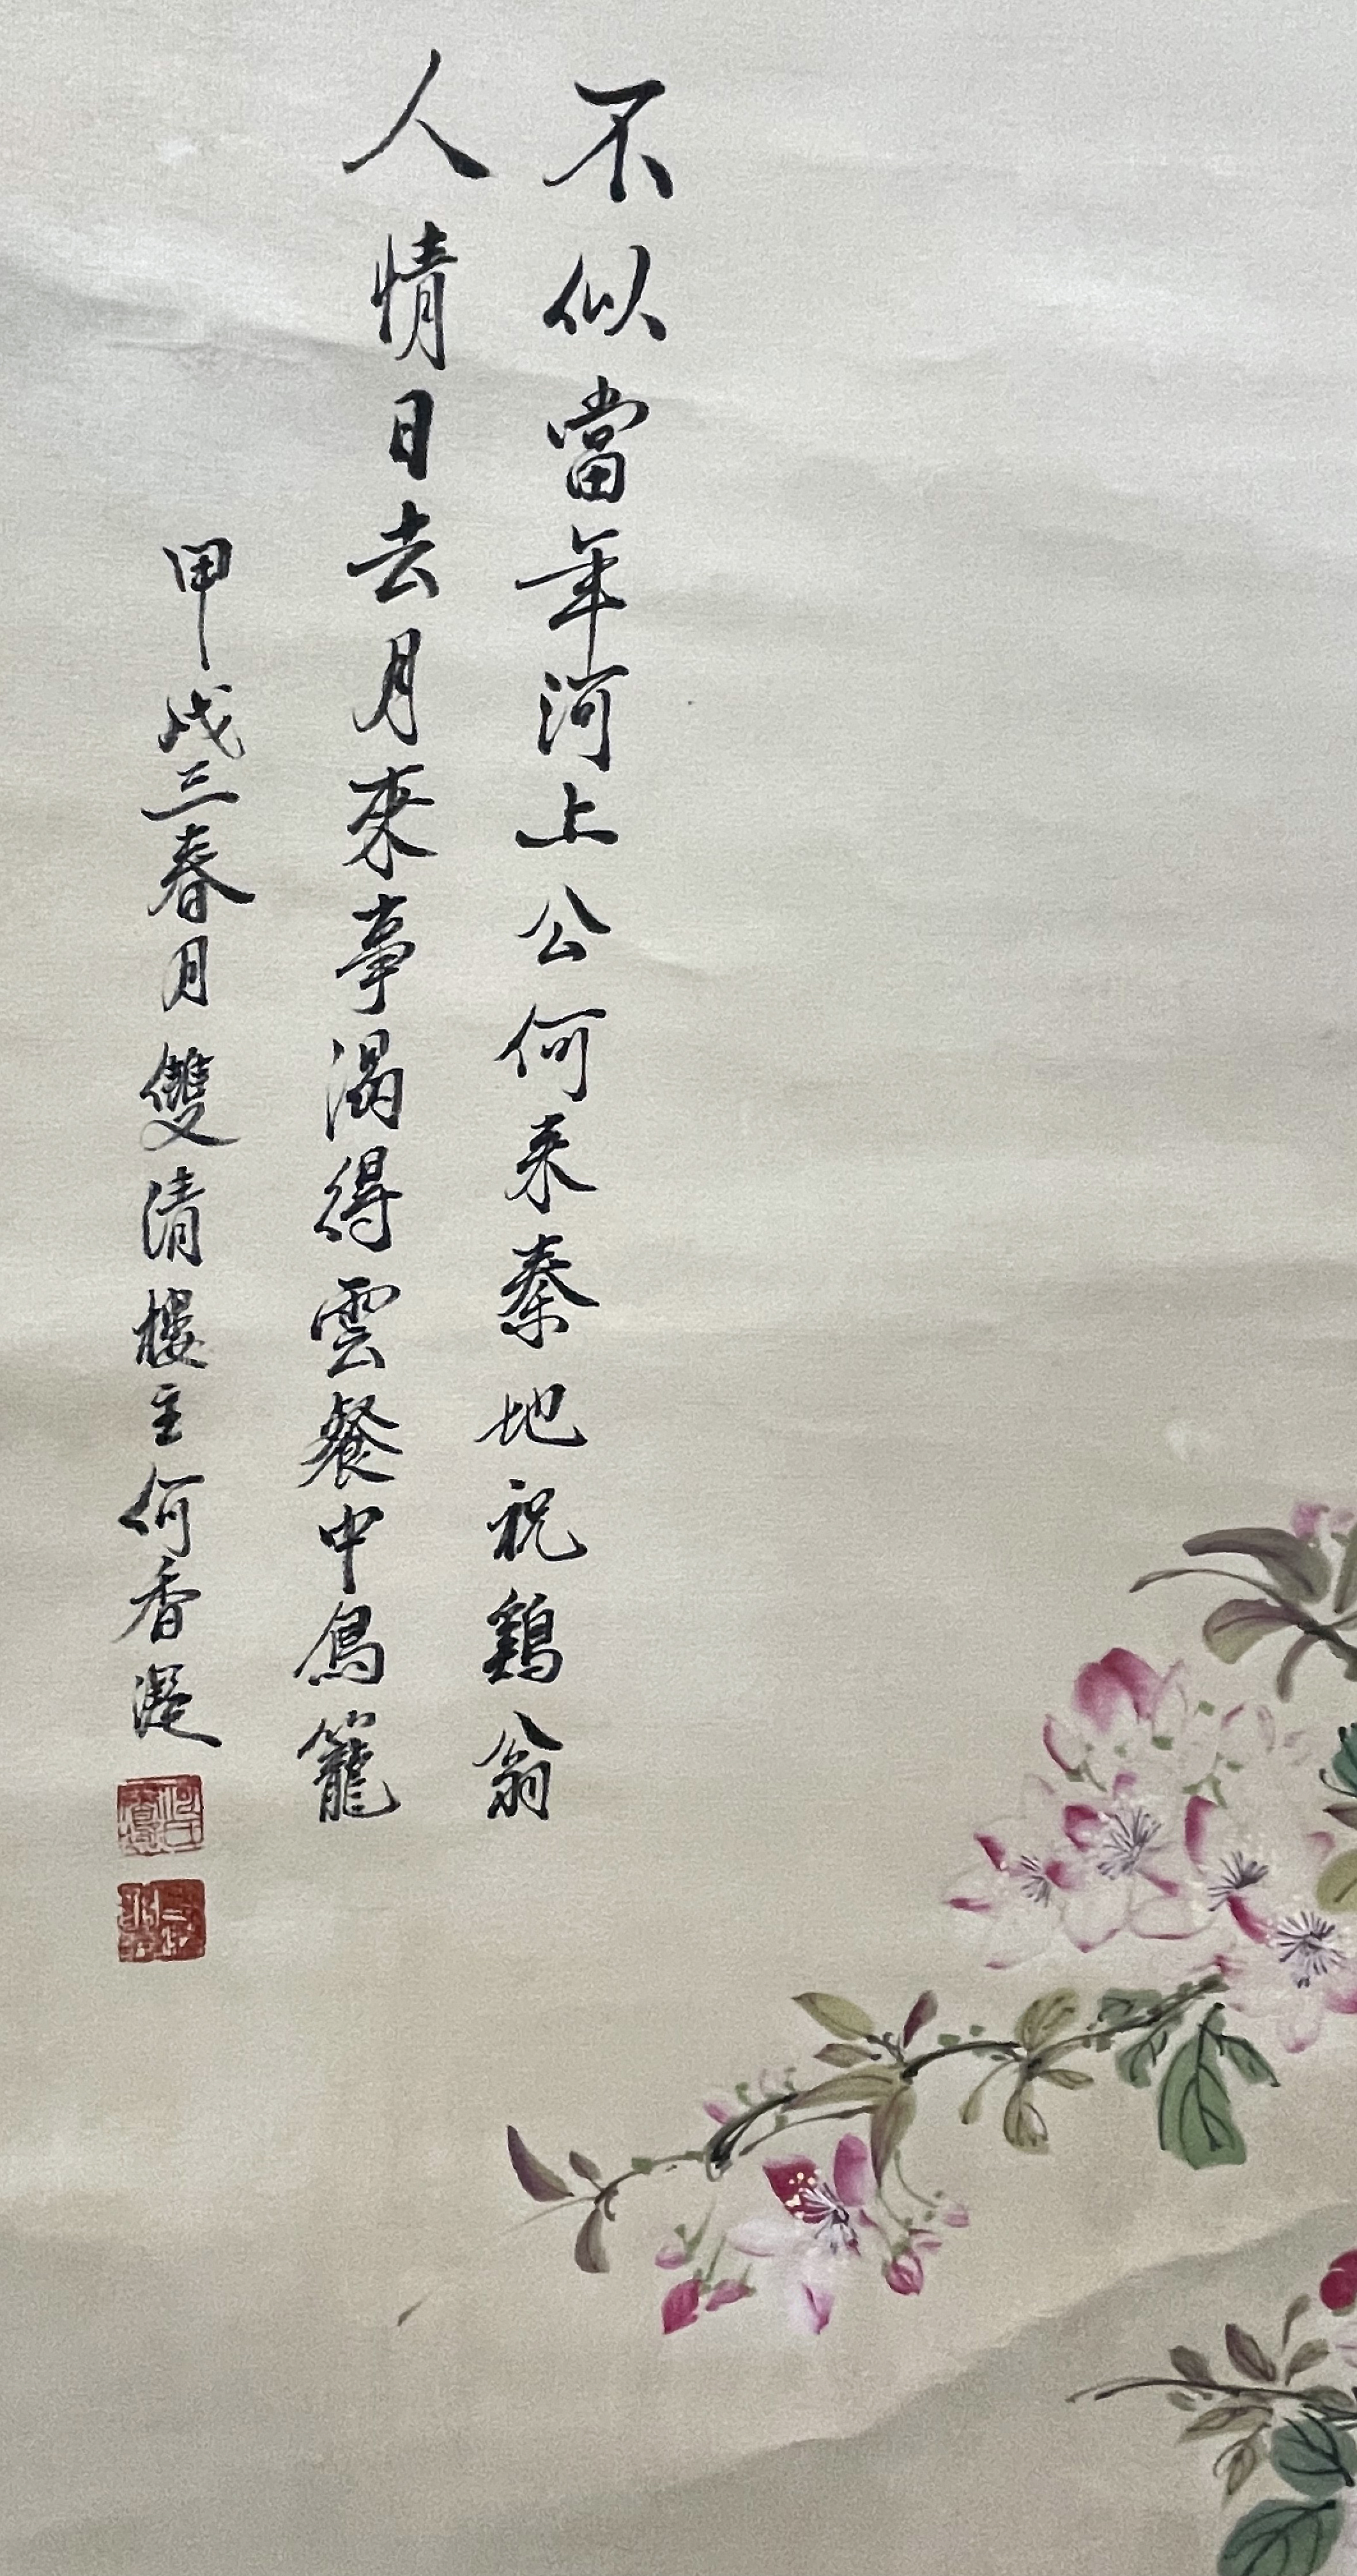 不似當年河上公何来秦地祝鷄翁
人情日去月來事渴得雲餐中鳥籠
甲戌三春月雙清樓主何香凝